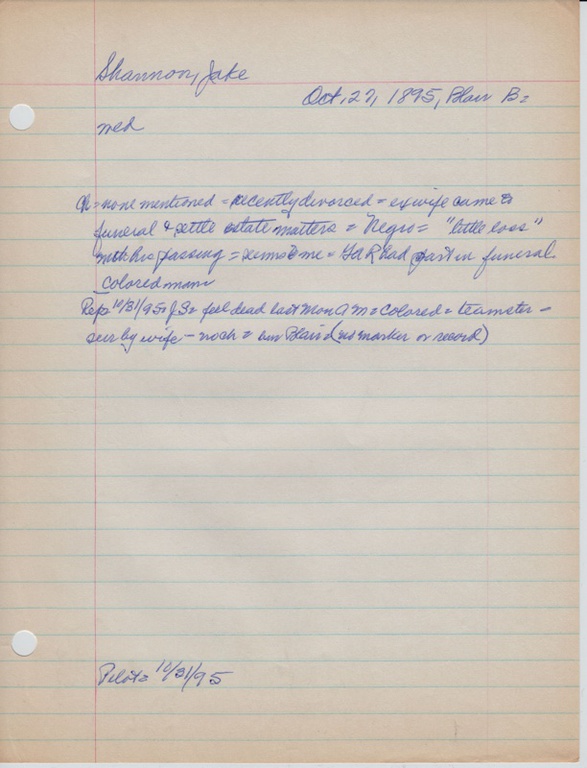 Shannon, Jake
Oct. 27, 1895, Blair B=
med
Ch = none mentioned = recently divorced = ex wife came to
funeral & settle estate matters = Negro = "little loss"
with his passing = seems to me = Y d R had part in funeral.
colored man
Rep= 10/31/95= J S= fell dead last Mon A M = Colored = teamster =
sur by wife - no ch = bur Blair = (no marker or record)
Pilot= 10/31/95